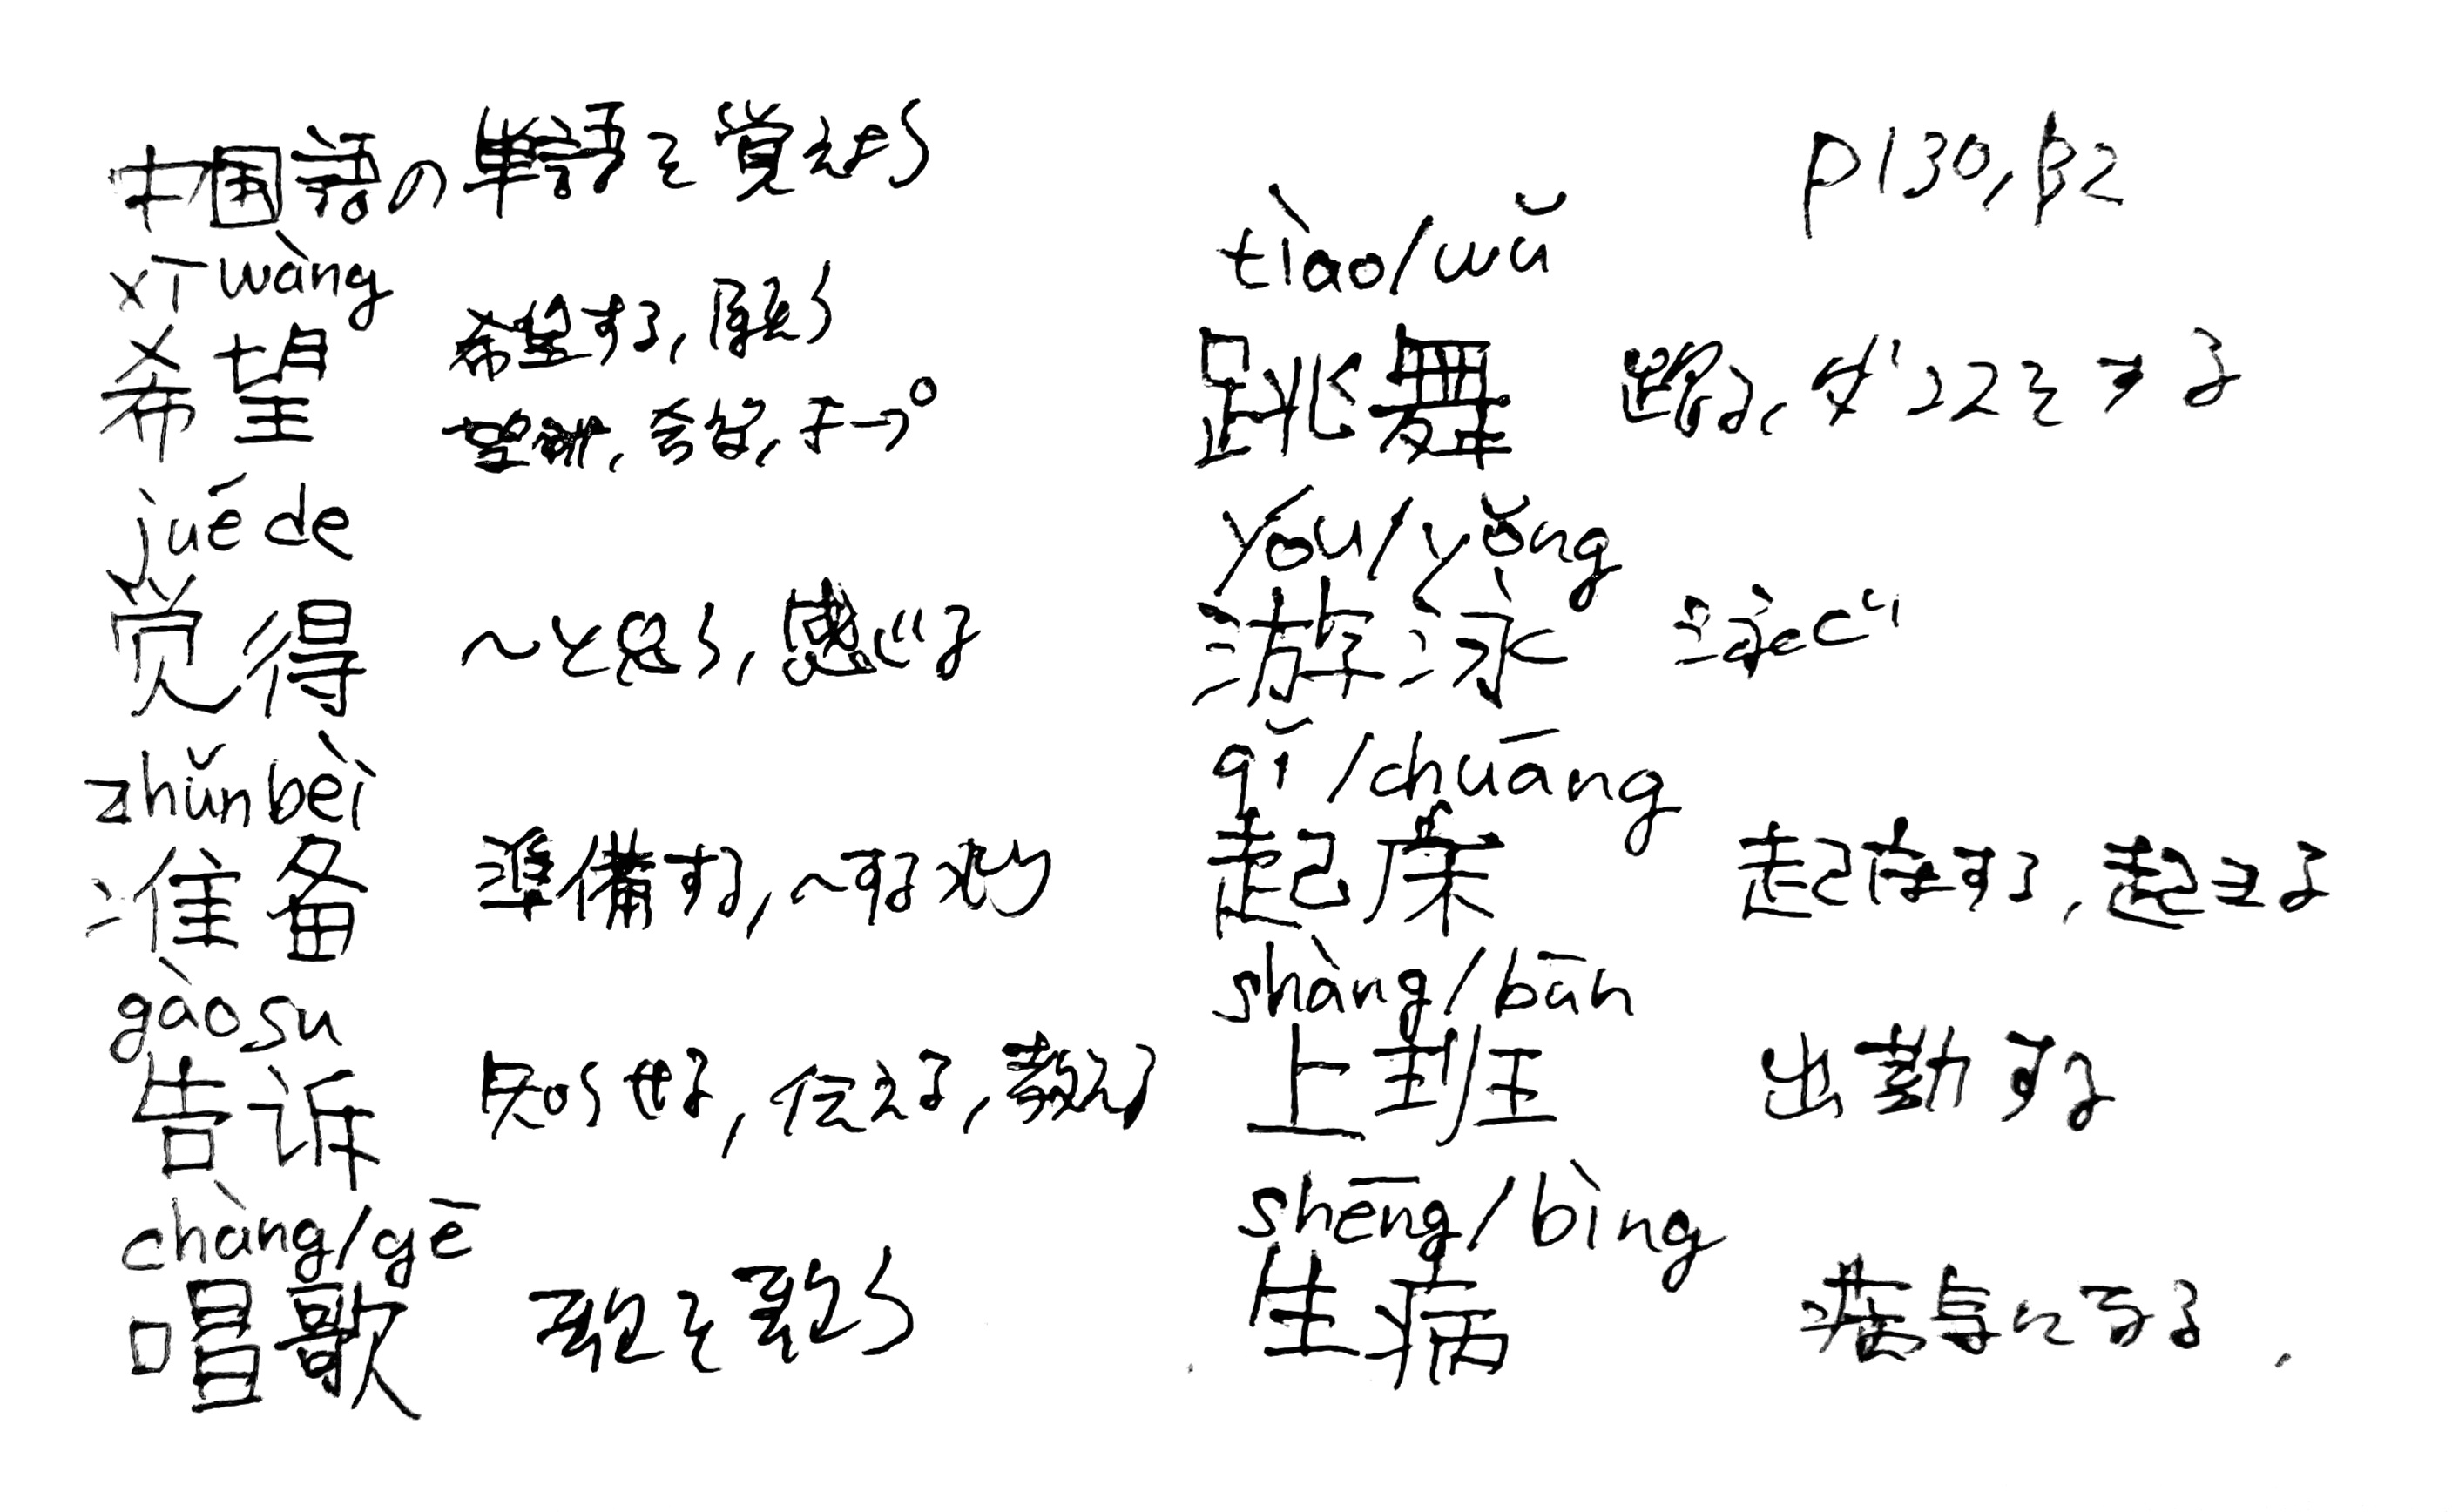 中国語の単語を覚えよう
p130, B2
xī wàng
希望 希望する, 願う
望, 希望, ホープ
jué de
觉得 ~と思う, 感じる
zhǔn bèi
准备 準備する, ~する
gào su
告诉 知らせる, 伝える, 教える
chàng/gē
唱歌 歌を歌う
tiào/wǔ
跳舞 踊る, ダンスをする
yóu/yǒng
游泳 泳ぐ
qǐ/chuáng
起床 起床する, 起きる
shàng/bān
上班 出勤する
shēng/bìng
生病 病気になる